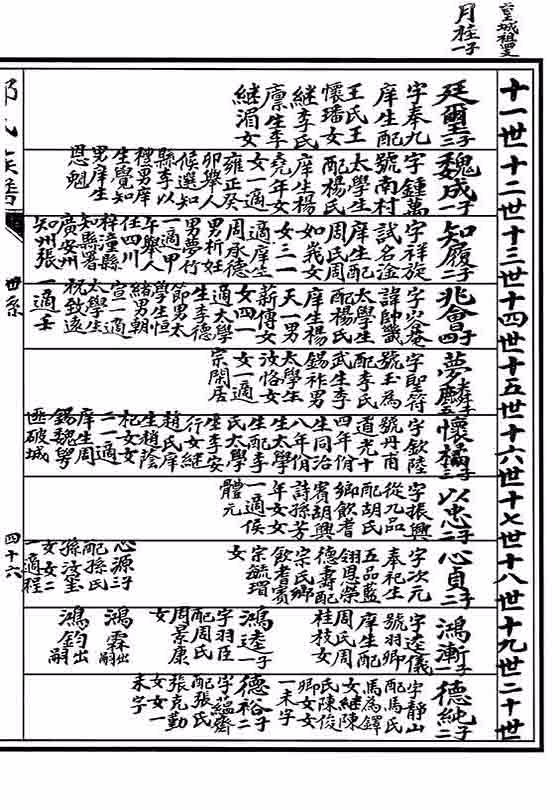 月柱子
十一世
十二世
十三世
十四世
十五世
十六世
十七世
十八世
十九世
二十世
廷璽三子
字奉九
庠生配
王氏王
懷璠女
継李氏
廪生李
継湄女
魏成一子
字鍾萬
號南村
太學生
配楊氏
庠生楊
堯年女
女一適
雍正癸
卯舉人
候選知
縣李以
禮男庠
生覺知
男庠生
恩魁
知履二子
字祥旋
試名淦
庠生配
周氏周
如羲女
女三一
適庠生
周承德
男析妊
男夢行
一適甲
午舉人
任四川
梓潼縣
知縣署
廣安州
知州張
兆會四子
字谷菴
諱帥
太學生
配楊氏
庠生楊
天一男
薪傳女
女四一
適太學
生李德
節男太
學生恒
緒男朝
宣一適
太學生
祝致遠
一適壬
夢麟子
字聖符
號玉為
配李氏
武生李
錫祚男
太學生
汝恪女
女一適
宗閑居
懷橘三子
字欽陸
號丹甫
道光十
四年份
生同治
八年份
生太學
生配李
氏太學
生李安
行女継
趙氏庠
生趙蔭
杞女女
二一適
庠生周
錫魏男
適破城
以忠二子
字振興
從九品
配胡氏
鄉飲耆
賓胡興
詩孫芳
年女女
一適侯
體元
心貞二子
字次元
奉祀生
五品藍
翎恩榮
德壽配
宗氏鄉
飲耆賓
宗毓瑁
女
心源三子
配孫氏
孫汝璽
女女二
一適程
鴻漸子
字逵儀
號羽卿
庠生配
周氏周
桂枝女
鴻逵一子
字羽臣
配周氏
周景康
女
鴻霖出嗣
鴻鈞出嗣
德純二子
字靜山
配馬氏
馬為鐸
女継陳
氏陳俊
卿女女
一未字
德裕二子
字蘊齋
配張氏
張克勤
女女一
未字
氏族譜
世系
四十六